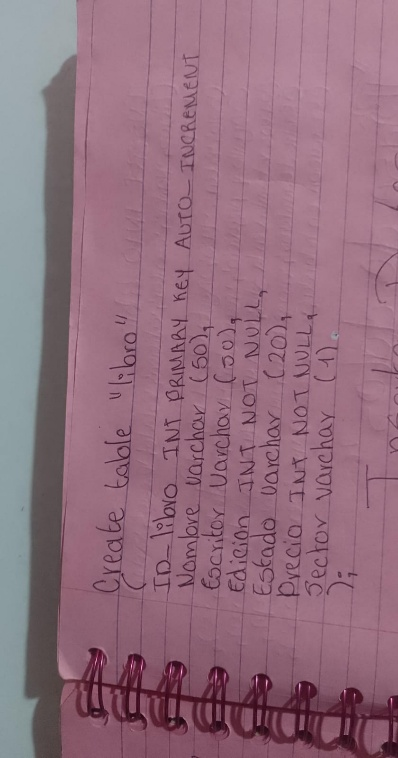 Create table "libro"
(
ID_libro INT PRIMARY KEY AUTO_INCREMENT
Nombre varchar (50),
Escritor varchar (50),
Edicion INT NOT NULL,
Estado varchar (20),
precio INT NOT NULL,
Sector varchar (1)
);